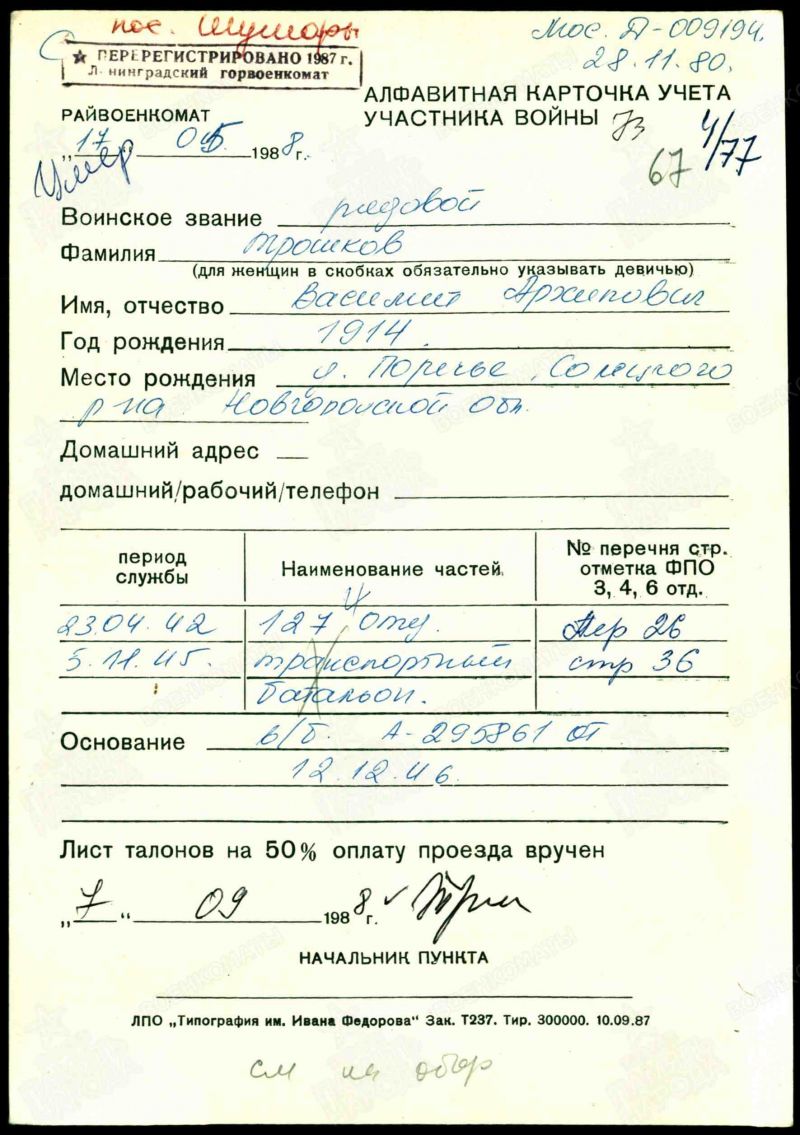 пос. Шушары
Мос. П-009194.
28.11.80.
★ ПЕРЕРЕГИСТРИРОВАНО 1987 г.
Л нинградский горвоенкомат
АЛФАВИТНАЯ КАРТОЧКА УЧЕТА
УЧАСТНИКА ВОЙНЫ
РАЙВОЕНКОМАТ
„17“ 05 1988 г.
Умер
67 4/77
Воинское звание рядовой
Фамилия Трошков
(для женщин в скобках обязательно указывать девичью)
Имя, отчество Василий Архипович
Год рождения 1914.
Место рождения д. Поречье, Солецкого
р-на Новгородской обл.
Домашний адрес
домашний/рабочий/телефон
период службы
Наименование частей
№ перечня стр. отметка ФПО 3, 4, 6 отд.
23.04.42 127 отд. Пер 26
5.11.45. транспортный стр 36
батальон.
Основание в/б. А-295861 от
12.12.46.
Лист талонов на 50% оплату проезда вручен
„7“ 09 1988 г.
НАЧАЛЬНИК ПУНКТА
ЛПО „Типография им. Ивана Федорова“ Зак. Т237. Тир. 300000. 10.09.87
см на обор